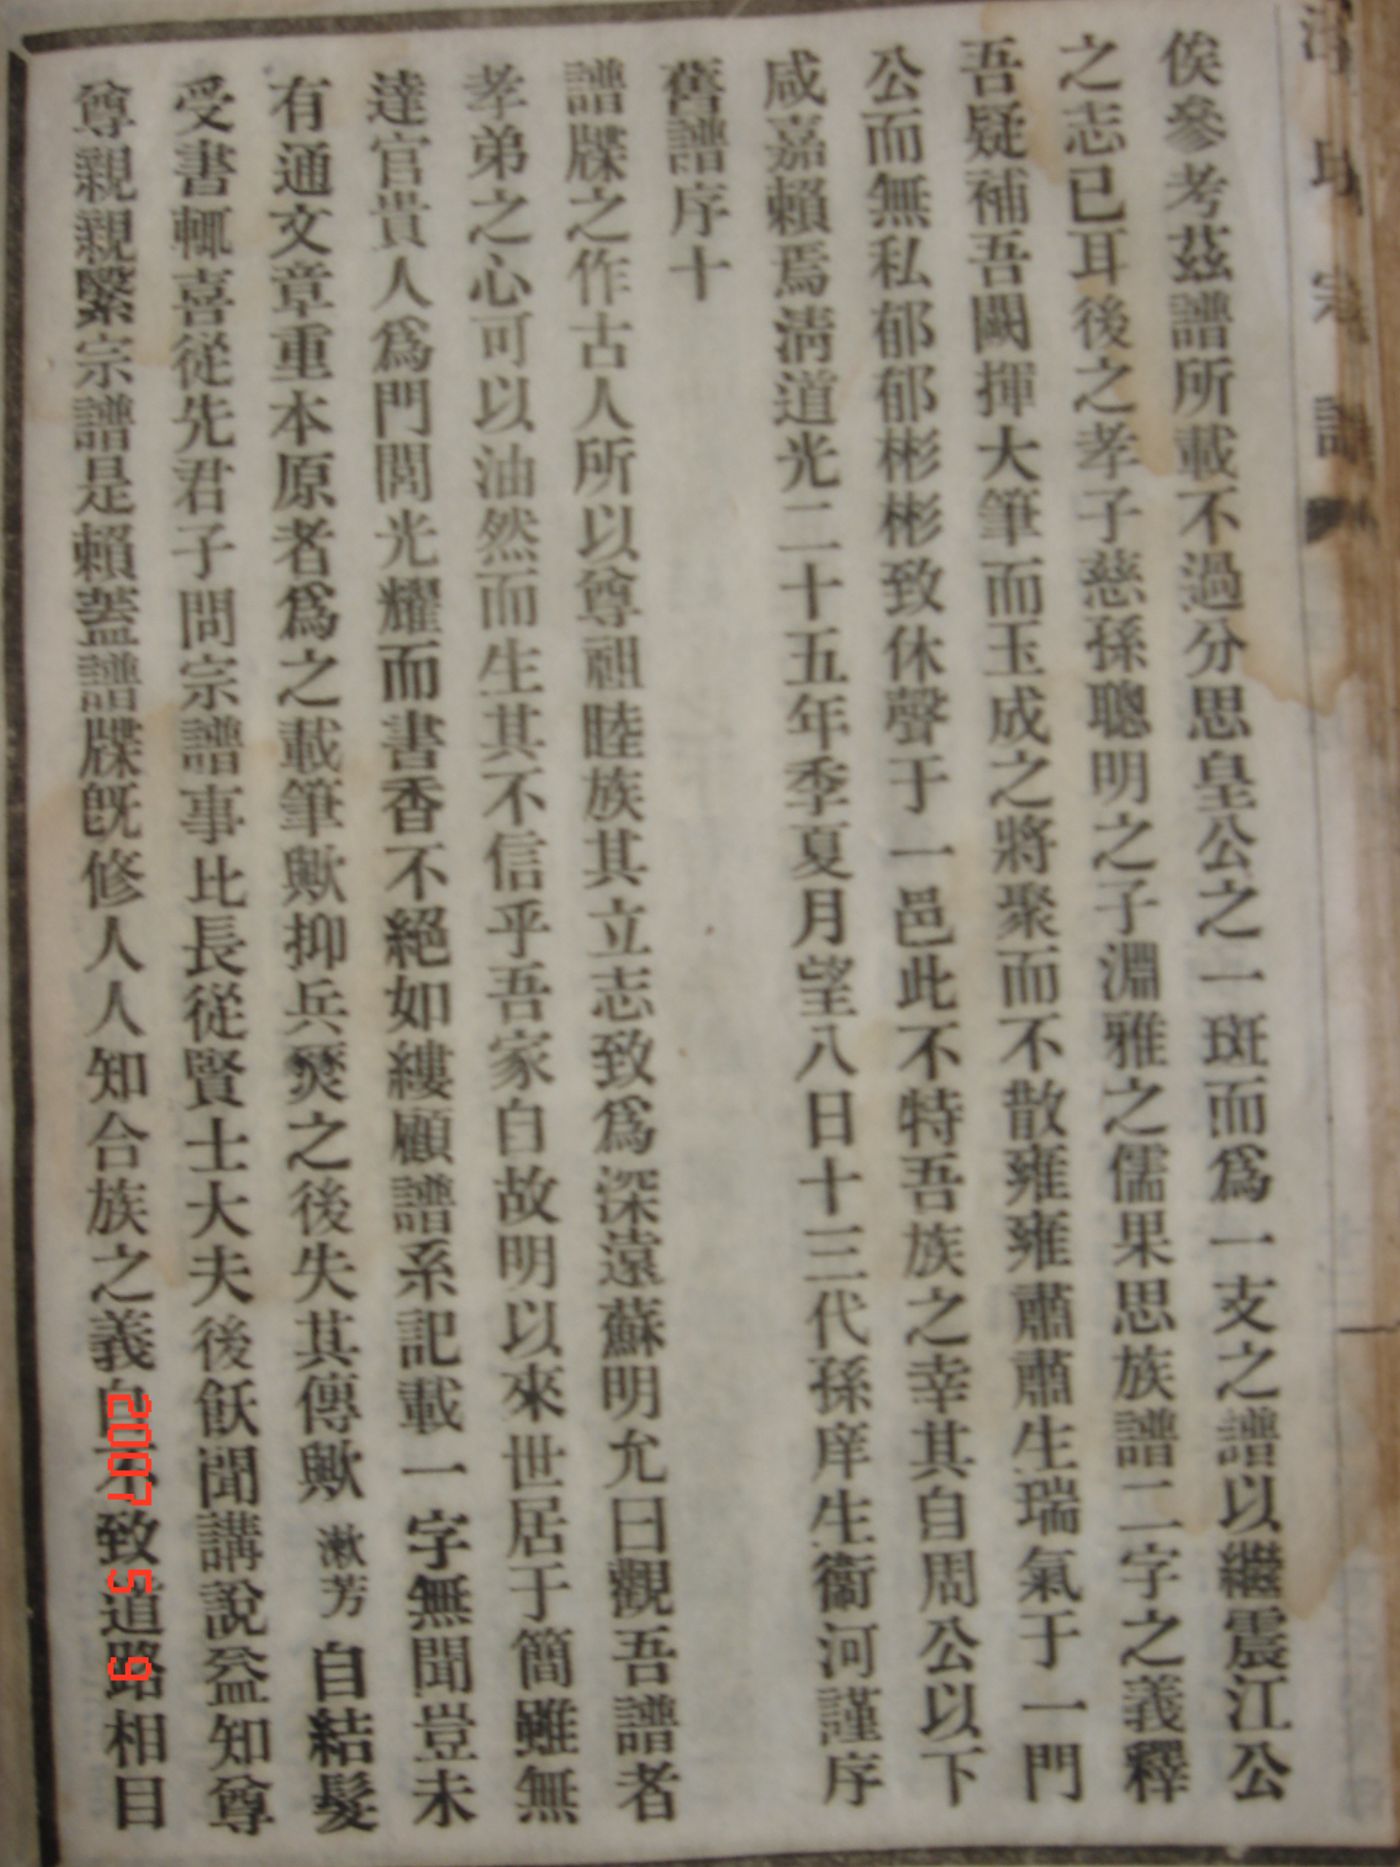 俟參考茲譜所載不過分思皇公之一斑而爲一支之譜以繼震江公
之志已耳後之孝子慈孫聰明之子淵雅之儒果思族譜二字之義釋
吾疑補吾闕揮大筆而玉成之將聚而不散雍雍肅肅生瑞氣于一門
公而無私郁郁彬彬致休聲于一邑此不特吾族之幸其自周公以下
咸嘉賴焉淸道光二十五年季夏月望八日十三代孫庠生衞河謹序
舊譜序十
譜牒之作古人所以尊祖睦族其立志致爲深遠蘇明允曰觀吾譜者
孝弟之心可以油然而生其不信乎吾家自故明以來世居于簡雖無
達官貴人爲門閭光耀而書香不絕如縷顧譜系記載一字無聞豈未
有通文章重本原者爲之載筆歟抑兵燹之後失其傳歟漱芳自結髮
受書輒喜從先君子問宗譜事比長從賢士大夫後飫聞講說益知尊
尊親親繫宗譜是賴蓋譜牒旣修人人知合族之義自不致道路相目
2007 5 19